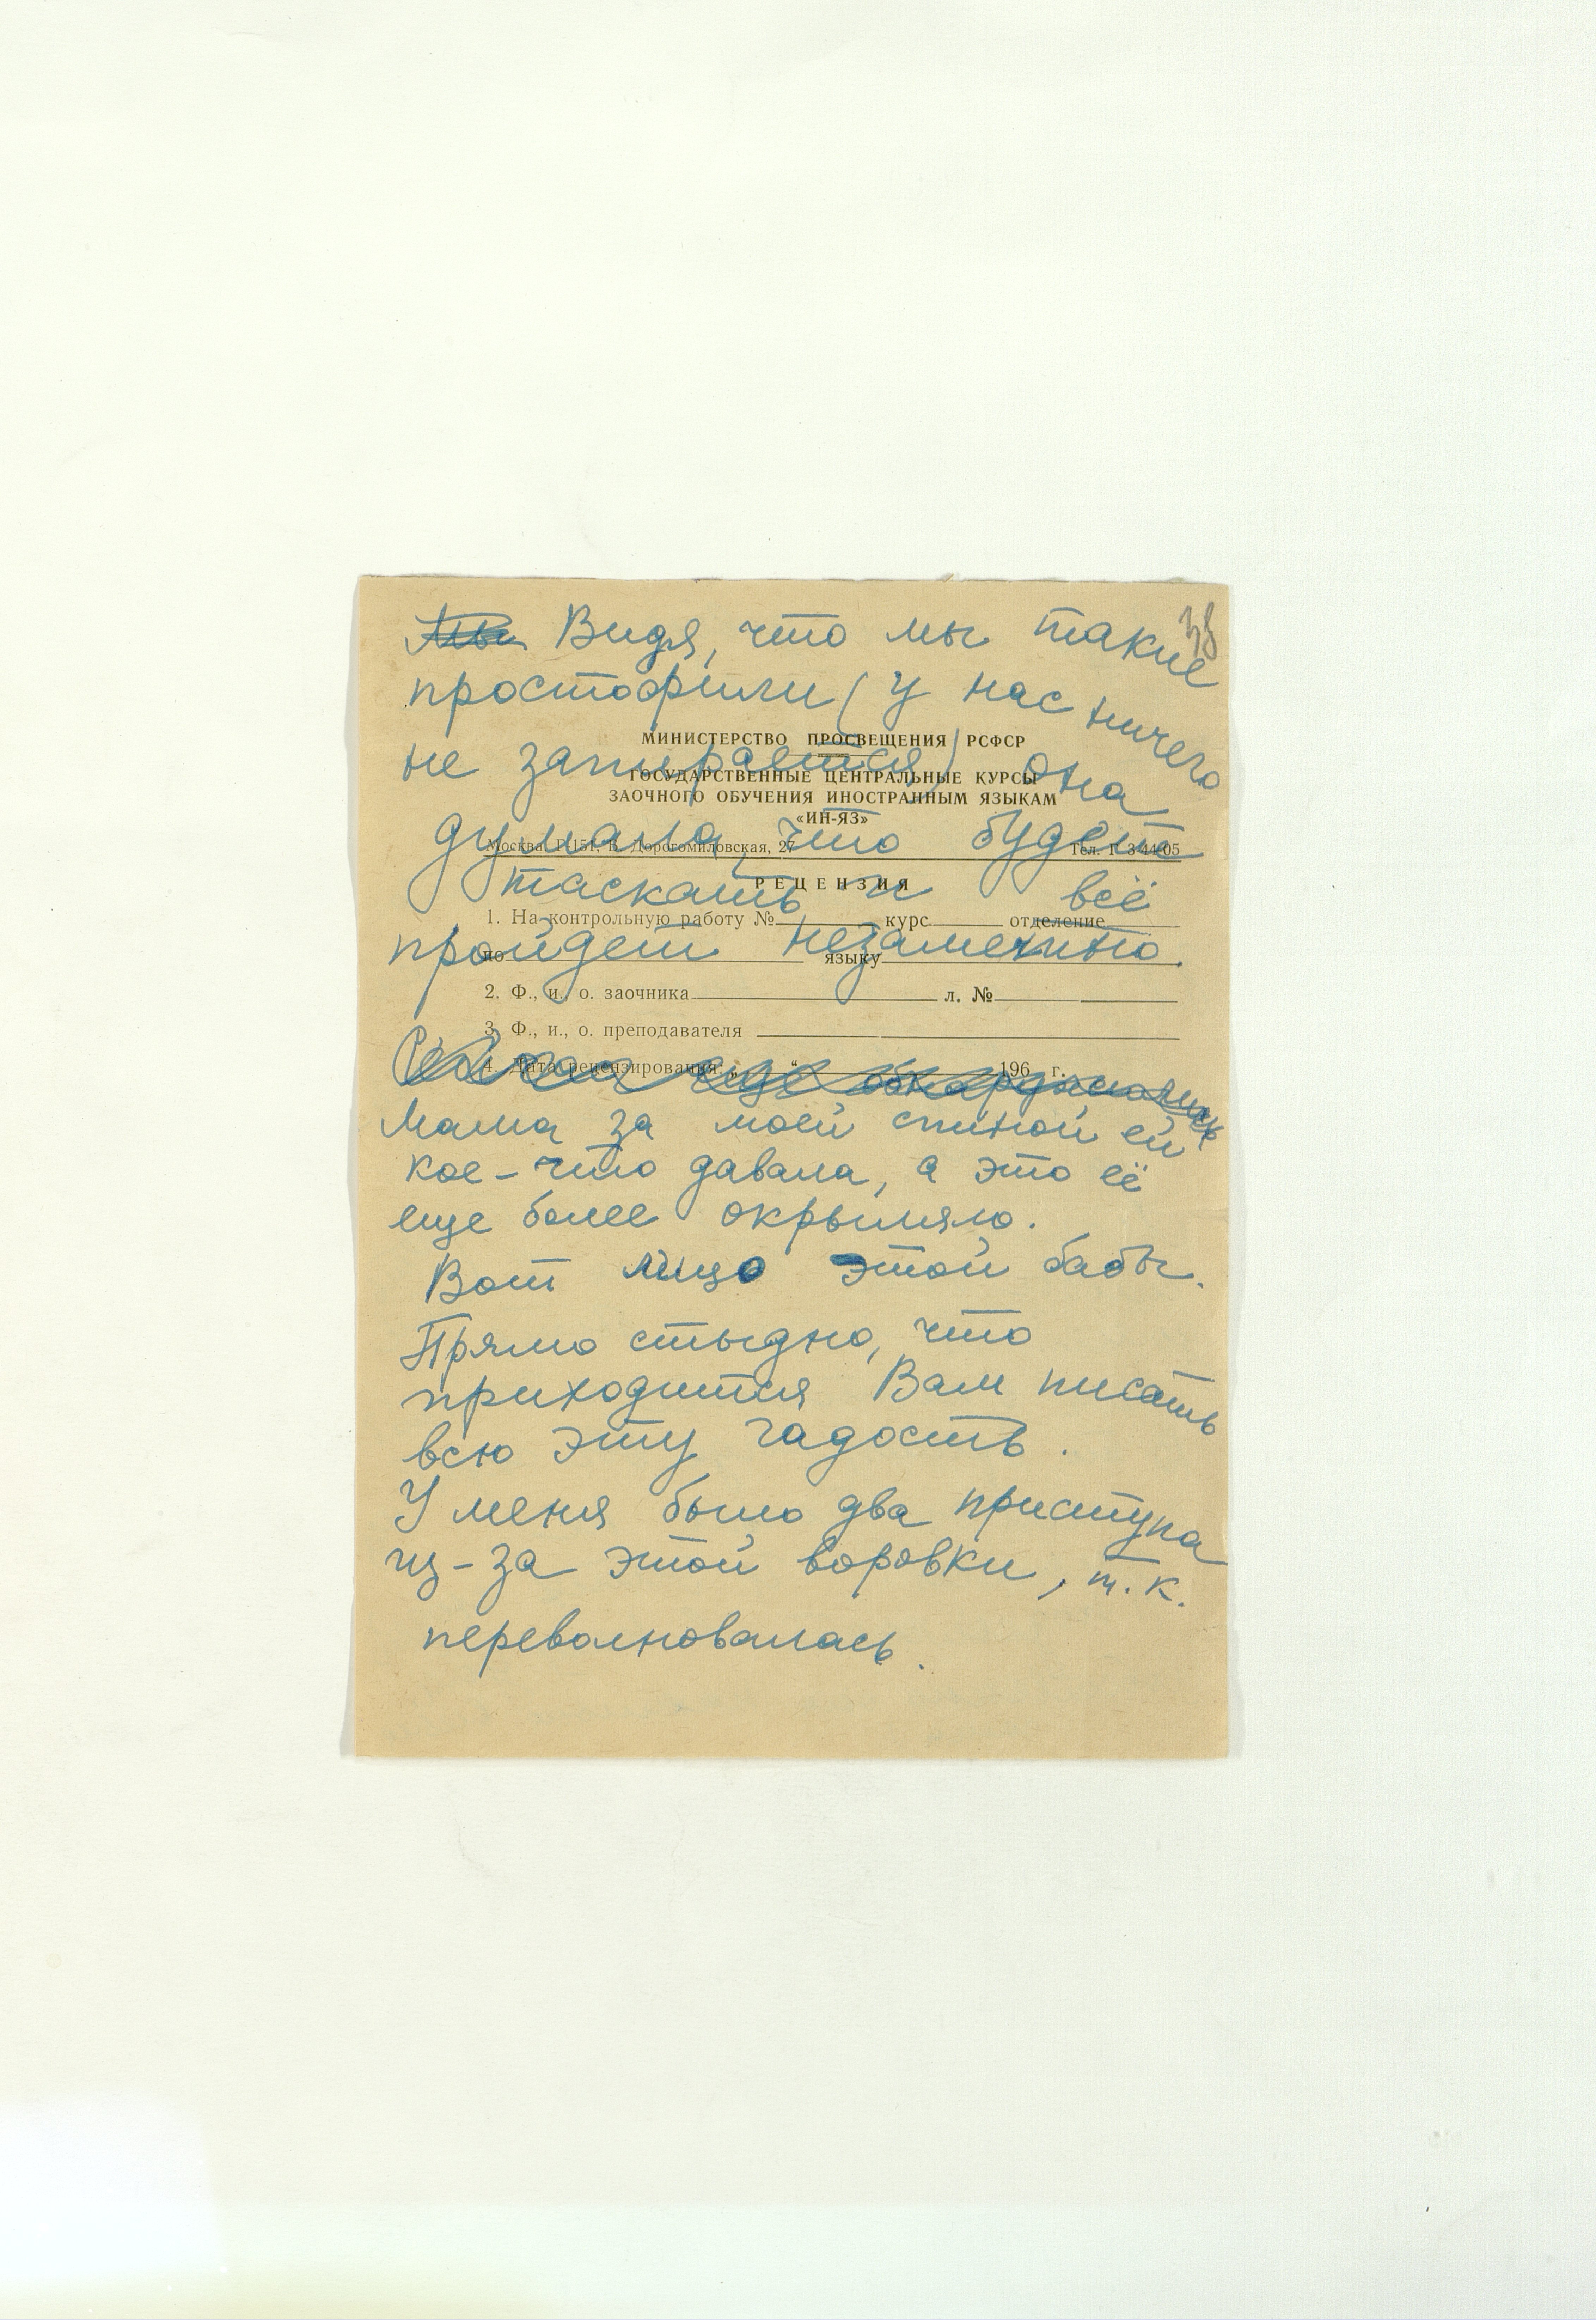 Мы Видя, что мы такие
простофили (у нас ничего
МИНИСТЕРСТВО ПРОСВЕЩЕНИЯ РСФСР
не запирается) она
ГОСУДАРСТВЕННЫЕ ЦЕНТРАЛЬНЫЕ КУРСЫ
ЗАОЧНОГО ОБУЧЕНИЯ ИНОСТРАННЫМ ЯЗЫКАМ
«ИН-ЯЗ»
думала, что будет
Москва, Г-151, Б. Дорогомиловская, 27 Тел. Г 3-44-05
РЕЦЕНЗИЯ
таскать и всё
1. На контрольную работу № курс отделение
пройдет незамечено.
по языку
2. Ф., и., о. заочника л. №
3. Ф., и., о. преподавателя
4. Дата рецензирования: „ “ 196 г.
еще обнаружилось
Мама за моей спиной ей
кое-что давала, а это её
еще более окрыляло.
Вот лицо этой бабы.
Прямо стыдно, что
приходится Вам писать
всю эту гадость.
У меня было два приступа
из-за этой воровки, т.к.
переволновалась.